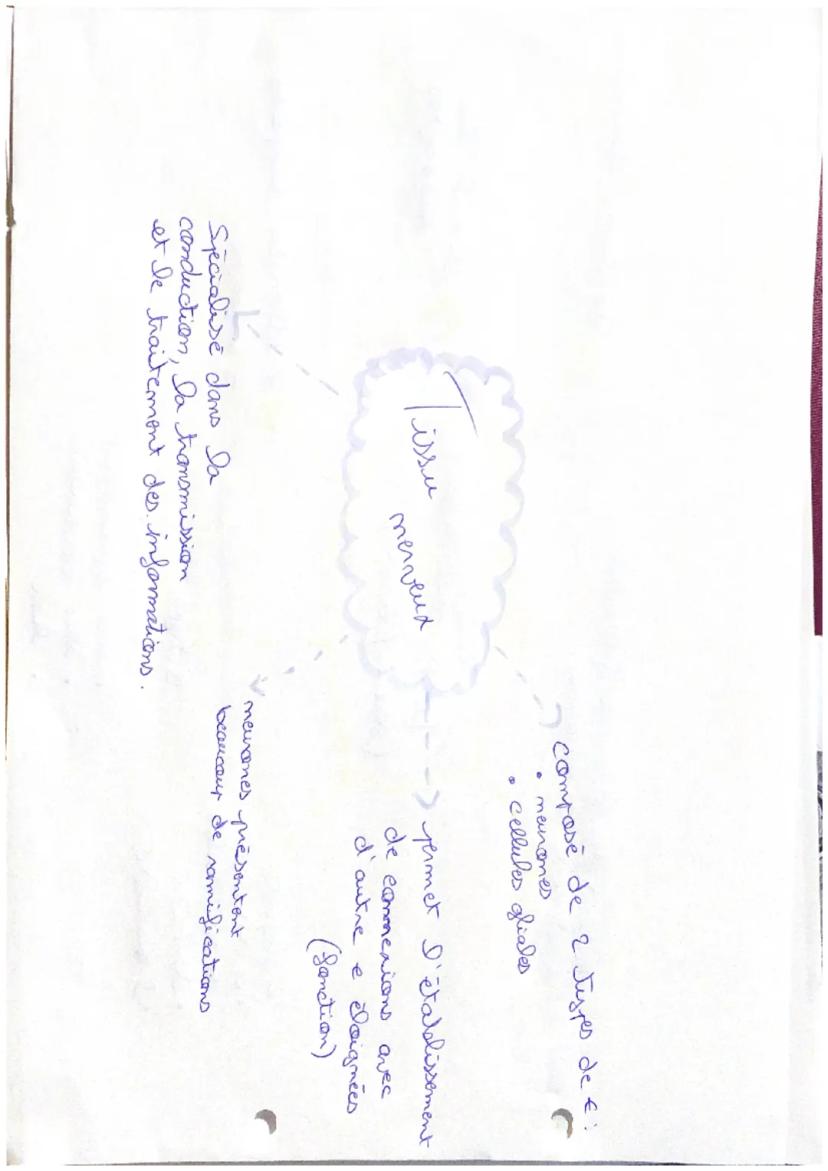 Tissu
nerveux
composé de 2 types de € :
• neurones
• cellules gliales
permet l'établissement
de connexions avec
d'autre e éloignées
(fonction)
neurones présentent
beaucoup de ramifications
Spécialisé dans la
conduction, la transmission
et le traitement des informations.